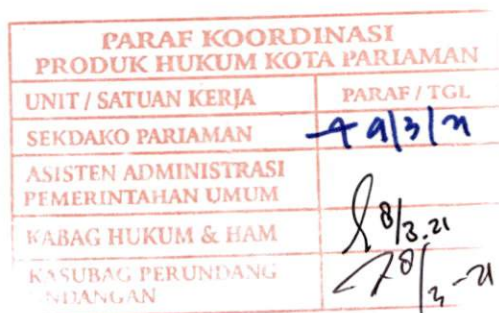 PARAF KOORDINASI
PRODUK HUKUM KOTA PARIAMAN
UNIT / SATUAN KERJA PARAF / TGL
SEKDAKO PARIAMAN 9/3/21
ASISTEN ADMINISTRASI
PEMERINTAHAN UMUM
KABAG HUKUM & HAM 8/3.21
KASUBAG PERUNDANG
NDANGAN 8/3-21